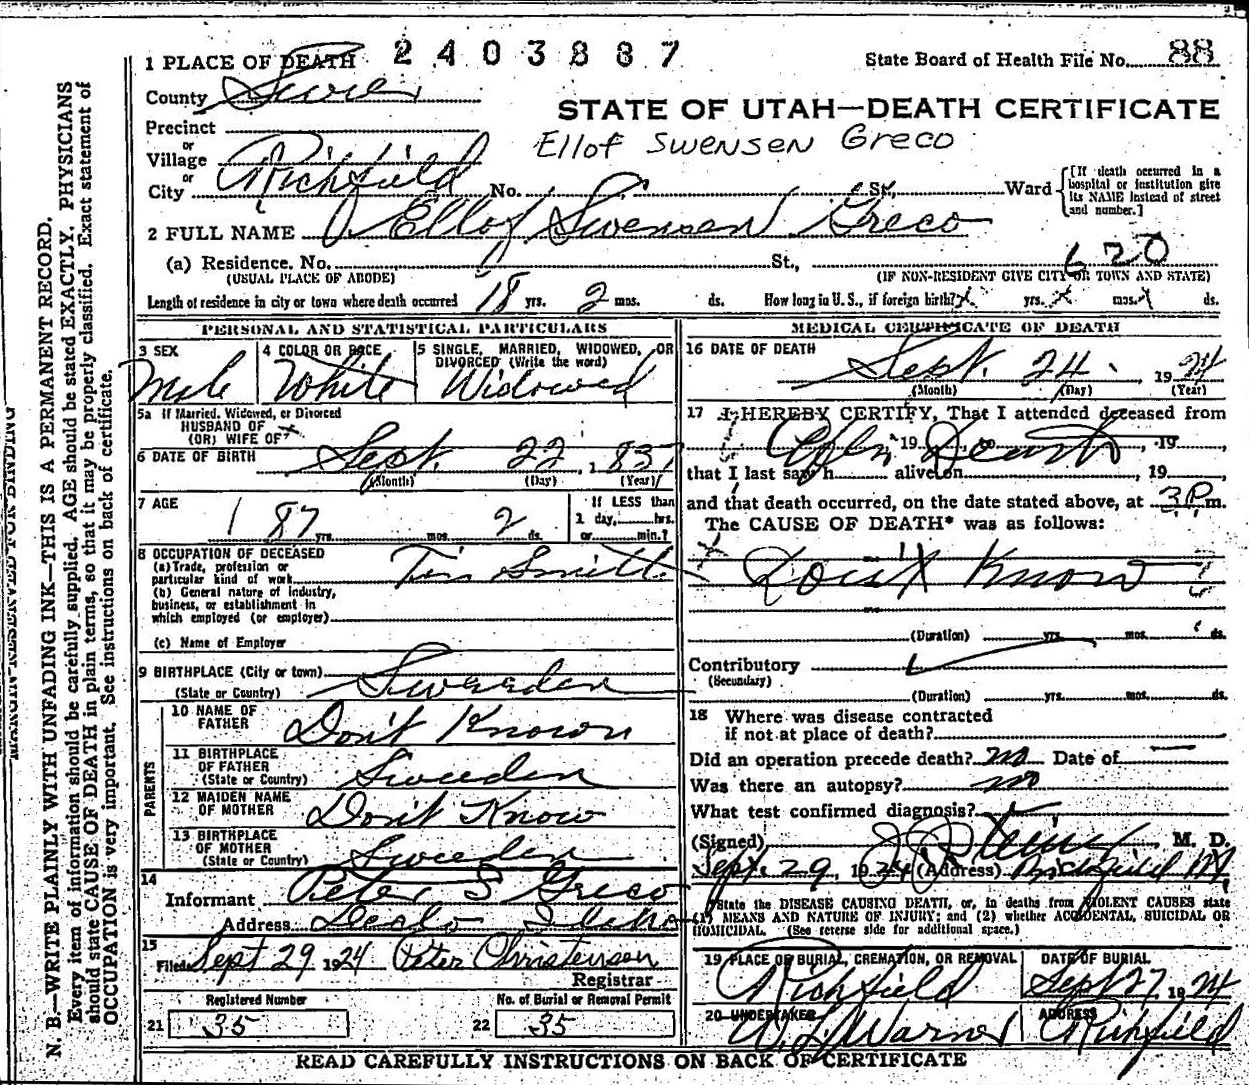 1 PLACE OF DEATH 2403887 State Board of Health File No. 88
County Sevier
STATE OF UTAH—DEATH CERTIFICATE
Precinct
or
Village
or
City Richfield No. St., Ward
Ellof Swensen Greco
[If death occurred in a hospital or institution give its NAME instead of street and number.]
2 FULL NAME Ellof Swensen Greco
620
(a) Residence. No. St.,
(USUAL PLACE OF ABODE) (IF NON-RESIDENT GIVE CITY OR TOWN AND STATE)
Length of residence in city or town where death occurred 18 yrs. 2 mos. ds. How long in U. S., if foreign birth? x yrs. x mos. x ds.
PERSONAL AND STATISTICAL PARTICULARS
3 SEX
Male
4 COLOR OR RACE
White
5 SINGLE, MARRIED, WIDOWED, OR
DIVORCED (Write the word)
Widowed
5a If Married, Widowed, or Divorced
HUSBAND OF
(OR) WIFE OF x
6 DATE OF BIRTH Sept. 22, 1837
(Month) (Day) (Year)
7 AGE
87 yrs. mos. 2 ds.
If LESS than
1 day, hrs.
or min.?
8 OCCUPATION OF DECEASED
(a) Trade, profession or
particular kind of work Tin Smith
(b) General nature of industry,
business, or establishment in
which employed (or employer)
(c) Name of Employer
9 BIRTHPLACE (City or town)
(State or Country) Sweeden
PARENTS
10 NAME OF
FATHER Don't Known
11 BIRTHPLACE
OF FATHER
(State or Country) Sweeden
12 MAIDEN NAME
OF MOTHER Don't Know
13 BIRTHPLACE
OF MOTHER
(State or Country) Sweeden
14
Informant Peter S Greco
Address Declo Idaho
15
Filed Sept 29 1924 Peter Christensen
Registrar
Registered Number No. of Burial or Removal Permit
21 35 22 35
MEDICAL CERTIFICATE OF DEATH
16 DATE OF DEATH
Sept. 24, 1924
(Month) (Day) (Year)
17 I HEREBY CERTIFY, That I attended deceased from
After 19 Death to , 19 ,
that I last saw h alive on , 19
and that death occurred, on the date stated above, at 3 P. m.
The CAUSE OF DEATH* was as follows:
Don't Know
(Duration) yrs. mos. ds.
Contributory
(Secondary)
(Duration) yrs. mos. ds.
18 Where was disease contracted
if not at place of death?
Did an operation precede death? no Date of —
Was there an autopsy? no
What test confirmed diagnosis?
(Signed) M. D.
Sept. 29, 1924 (Address) Richfield
State the DISEASE CAUSING DEATH, or, in deaths from VIOLENT CAUSES state
(1) MEANS AND NATURE OF INJURY; and (2) whether ACCIDENTAL, SUICIDAL OR
HOMICIDAL. (See reverse side for additional space.)
19 PLACE OF BURIAL, CREMATION, OR REMOVAL
Richfield
DATE OF BURIAL
Sept 27, 1924
20 UNDERTAKER
Warner
ADDRESS
Richfield
READ CAREFULLY INSTRUCTIONS ON BACK OF CERTIFICATE
N. B.—WRITE PLAINLY WITH UNFADING INK—THIS IS A PERMANENT RECORD.
Every item of information should be carefully supplied. AGE should be stated EXACTLY. PHYSICIANS
should state CAUSE OF DEATH in plain terms, so that it may be properly classified. Exact statement of
OCCUPATION is very important. See instructions on back of certificate.